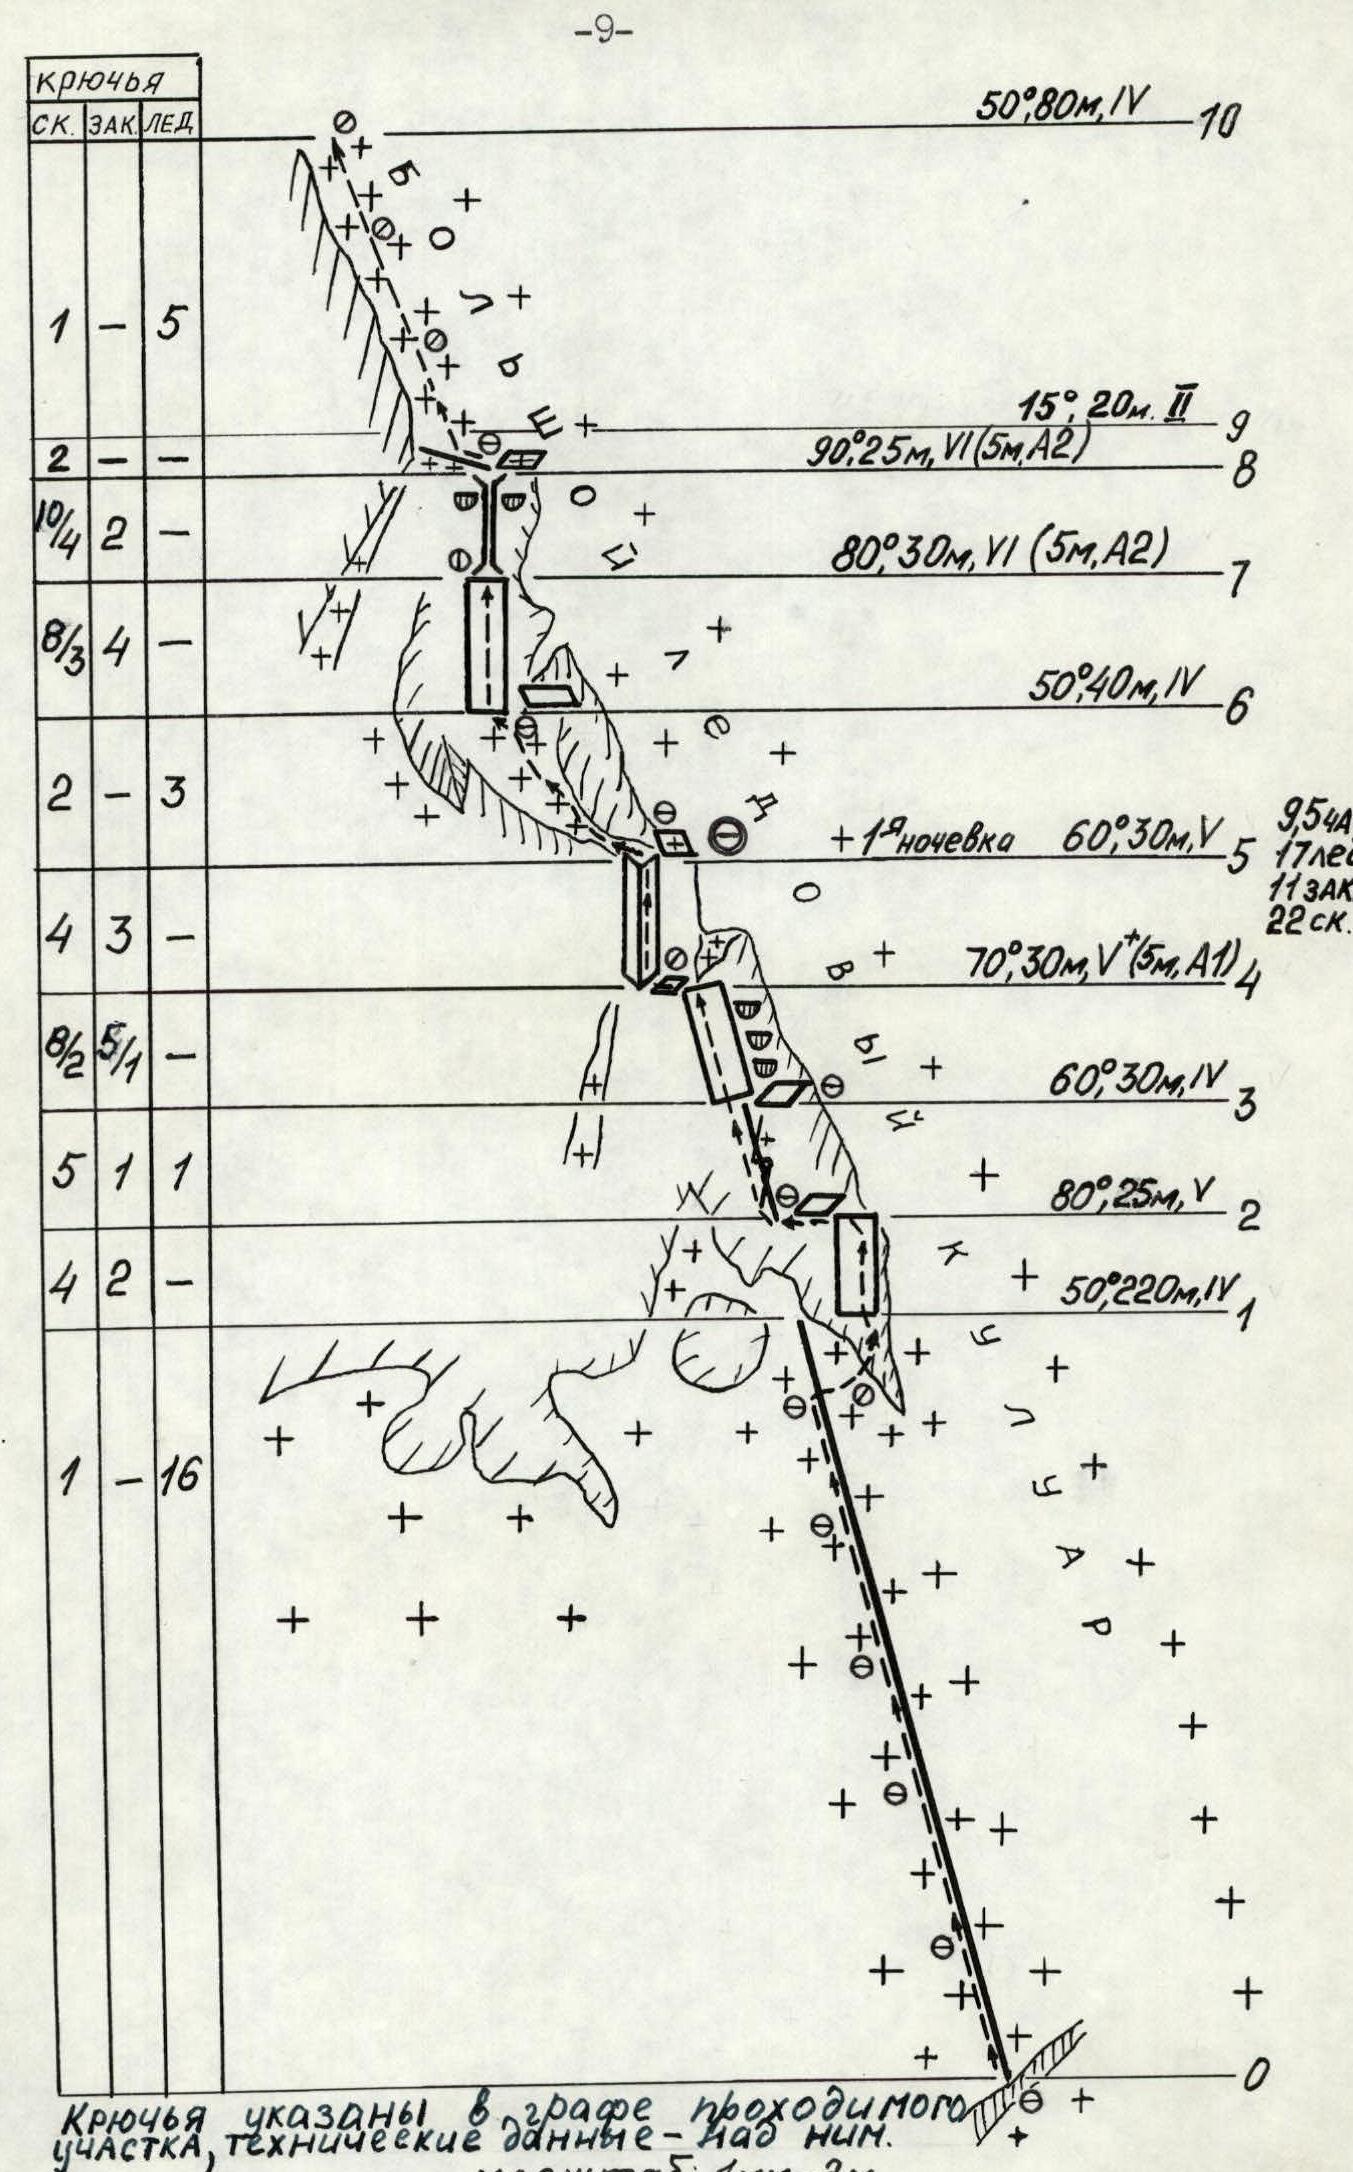 -9-
крючья
СК. ЗАК. ЛЕД
50°, 80м, IV 10
1 – 5
15°, 20м. II 9
2 – –
90°, 25м, VI (5м, А2) 8
10/4 2 –
80°, 30м, VI (5м, А2) 7
8/3 4 –
50°, 40м, IV 6
2 – 3
1я ночевка 60°, 30м, V 5
9,5 ЧА
17 лед
11 ЗАК
22 СК.
4 3 –
70°, 30м, V+ (5м, А1) 4
8/2 5/1 –
60°, 30м, IV 3
5 1 1
80°, 25м, V 2
4 2 –
50°, 220м, IV 1
1 – 16
0
БОЛЬШОЙ ЛеДОВЫЙ КУЛУАР
Крючья указаны в графе проходимого
участка, технические данные – над ним.